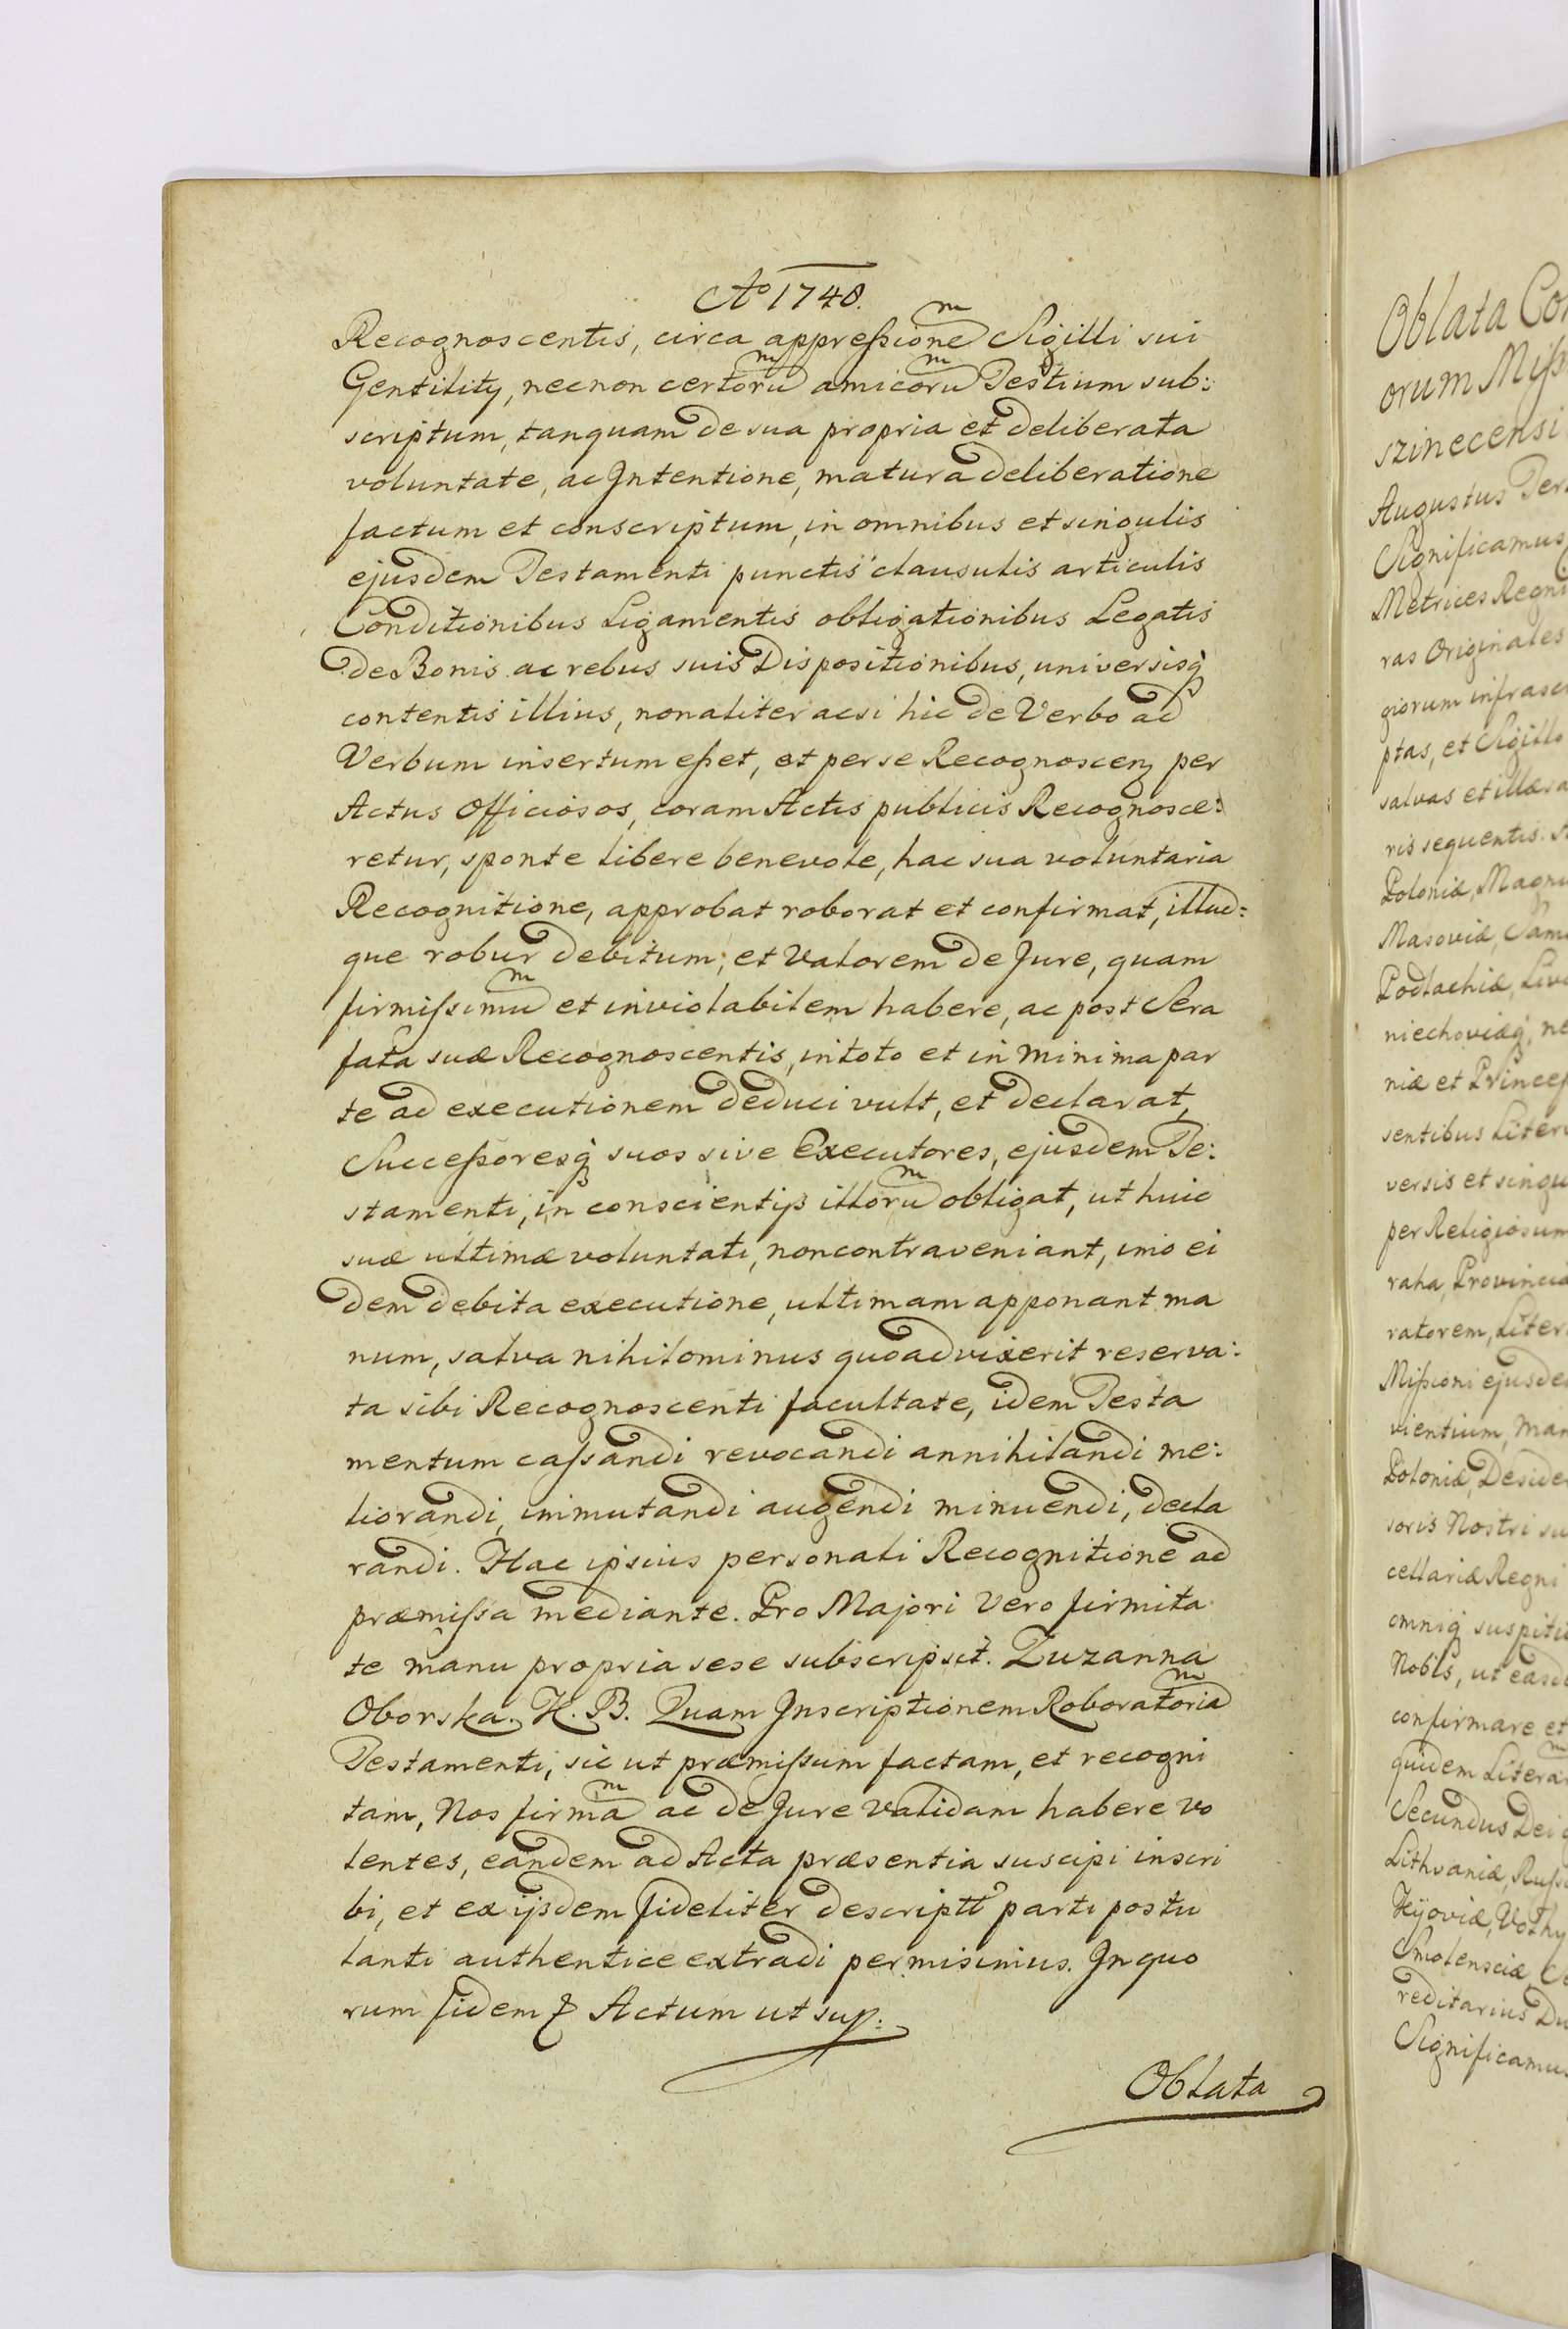 Aᵒ 1748.
Recognoscentis, circa appreßioneᵐ Sigilli sui
Gentility, necnon certoruᵐ amicoruᵐ Testium sub:
scriptum, tanquam de sua propria et deliberata
voluntate, ac Intentione, matura deliberatione
factum et conscriptum, in omnibus et singulis
ejusdem Testamenti punctis clausulis articulis
Conditionibus Ligamentis obligationibus Legatis
de Bonis ac rebus suis Dispositionibus, universisq́
contentis illius, nonaliter acsi hic de Verbo ad
Verbum insertum eßet, et per se Recognoscenʒ per
Actus Officiosos, coram Actis publicis Recognosce:
retur, sponte libere benevole, hac sua voluntaria
Recognitione, approbat roborat et confirmat, illud:
que robur debitum, et Valorem de Jure, quam
firmißimuᵐ et inviolabilem habere, ac post Sera
fata suæ Recognoscentis, in toto et in minima par
te ad executionem deduci vult, et declarat,
Succeßoresq́ suos sive Executores, ejusdem Te:
stamenti, in conscientijs illoruᵐ obligat, ut huic
suæ ultimæ voluntati, noncontraveniant, imo ei
dem debita executione, ultimam apponant ma
num, salva nihilominus quoad vixerit reserva:
ta sibi Recognoscenti facultate, idem Testa
mentum caßandi revocandi annihilandi me:
liorandi, immutandi augendi minuendi, decla
randi. Hac ipsius personali Recognitione ad
præmißa mediante. Pro Majori Vero firmita
te manu propria sese subscripsit. Zuzanna
Oborska. K. B. Quam Inscriptionem Roboratoriaᵐ
Testamenti, sic ut præmißum factam, et recogni
tam, Nos firmaᵐ ac de Jure Validam habere vo
lentes, eandem ad Acta præsentia suscipi inscri
bi, et ex ijsdem fideliter descriptt parti postu
lanti authentice extradi permisimus. In quo
rum fidem & Actum ut sup:
Oblata
Oblata Co
orum Miß
szinecensi
Augustus Ter
Significamus
Metrices Regni
ras Originales
giorum infrasc
ptas, et Sigillo
salvas et illæsa
ris sequentis.
Poloniæ, Magn
Masoviæ, Sam
Podlachiæ, Liv
niechoviæq́, ne
niæ et Princep
sentibus Liter
versis et singu
per Religiosum
raha, Provincia
ratorem, Liter
Mißioni ejusde
vientium, Man
Poloniæ, Deside
soris Nostri su
cellariæ Regni
omniq́ suspiti
Nobis, ut easd
confirmare et
quidem Litera
Secundus Dei g
Lithvaniæ, Ruß
Kijoviæ, Volhy
Smolensciæ,
reditarius Du
Significamus